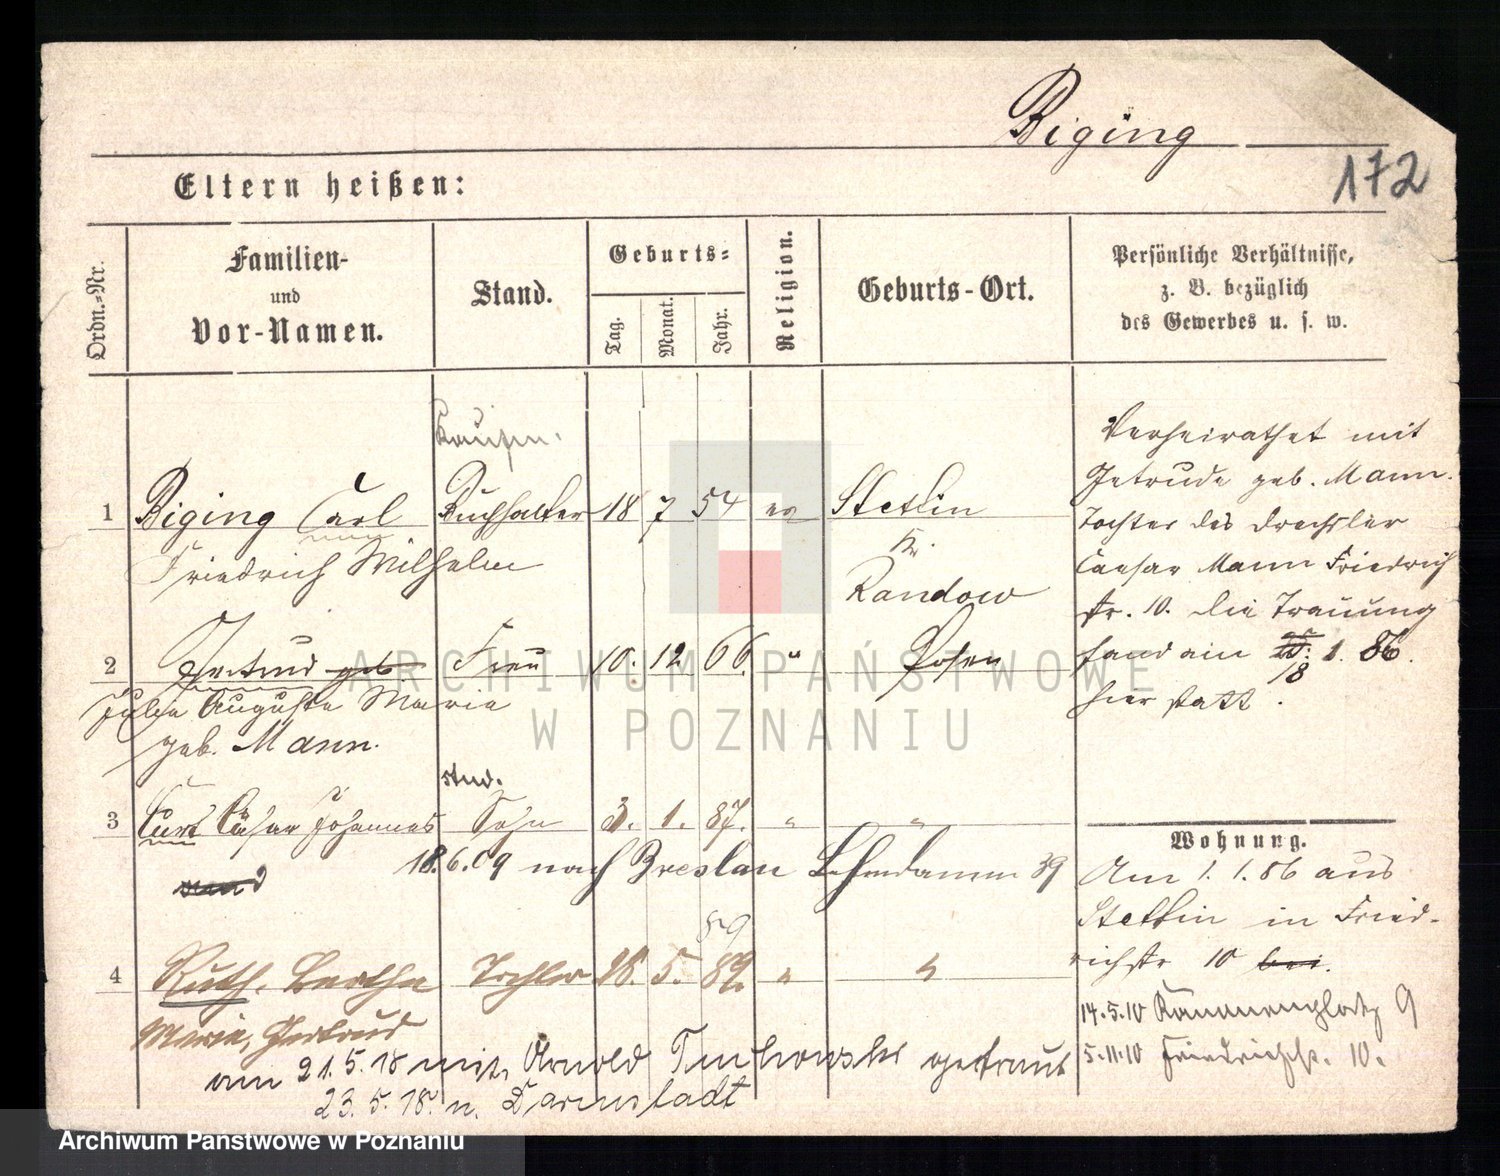 Biging
172
Eltern heißen:
Ordn.-Nr.
Familien-
und
Vor-Namen.
Stand.
Geburts-
Tag.
Monat.
Jahr.
Religion.
Geburts-Ort.
Persönliche Verhältnisse,
z. B. bezüglich
des Gewerbes u. s. w.
Kaufm.
1 Biging Carl Buchhalter 18 7 54 ev Stettin
Friedrich Wilhelm
Kr.
Randow
2 Gertrud geb Frau 10. 12 66. " Posen
Julie Auguste Marie
geb. Mann.
stud.
3 Curt Cäsar Johannes Sohn 3. 1. 87. " "
18.6.09 nach Breslau Lehmdamm 39
89
4 Ruth, Bertha Tochter 18. 5. 89. " "
Marie, Gertrud
am 21.5.18 mit Arnold getraut
23.5.18. n. Darmstadt
Verheirathet mit
Getrude geb. Mann.
Tochter des Drechsler
Caesar Mann Friedrich
str. 10. Die Trauung
fand am 8 1. 86.
hier statt.
Wohnung.
Am 1. 1. 86 aus
Stettin in Fried-
richstr 10 bei.
14.5.10 9
5.11.10 Friedrichstr. 10.
ARCHIWUM PAŃSTWOWE
W POZNANIU
Archiwum Państwowe w Poznaniu